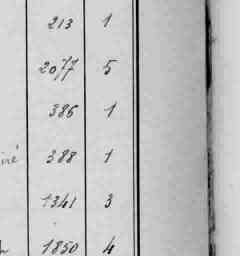 213 1
2077 5
386 1
388 1
1341 3
1850 4